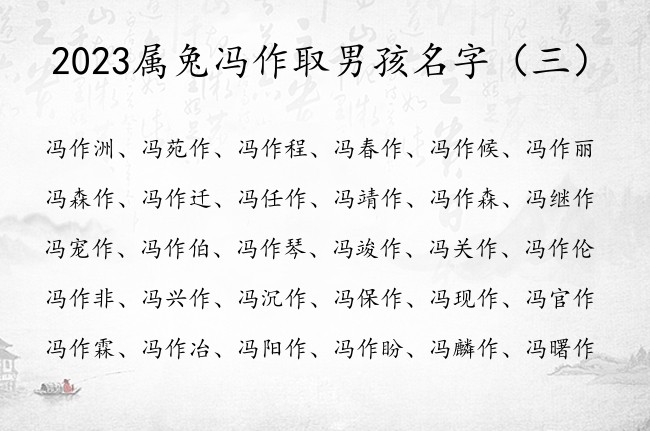 2023属兔冯作取男孩名字（三）
冯作洲、冯苑作、冯作程、冯春作、冯作候、冯作丽
冯森作、冯作迁、冯任作、冯靖作、冯作森、冯继作
冯宠作、冯作伯、冯作琴、冯竣作、冯关作、冯作伦
冯作非、冯兴作、冯沉作、冯保作、冯现作、冯官作
冯作霖、冯作冶、冯阳作、冯作盼、冯麟作、冯曙作